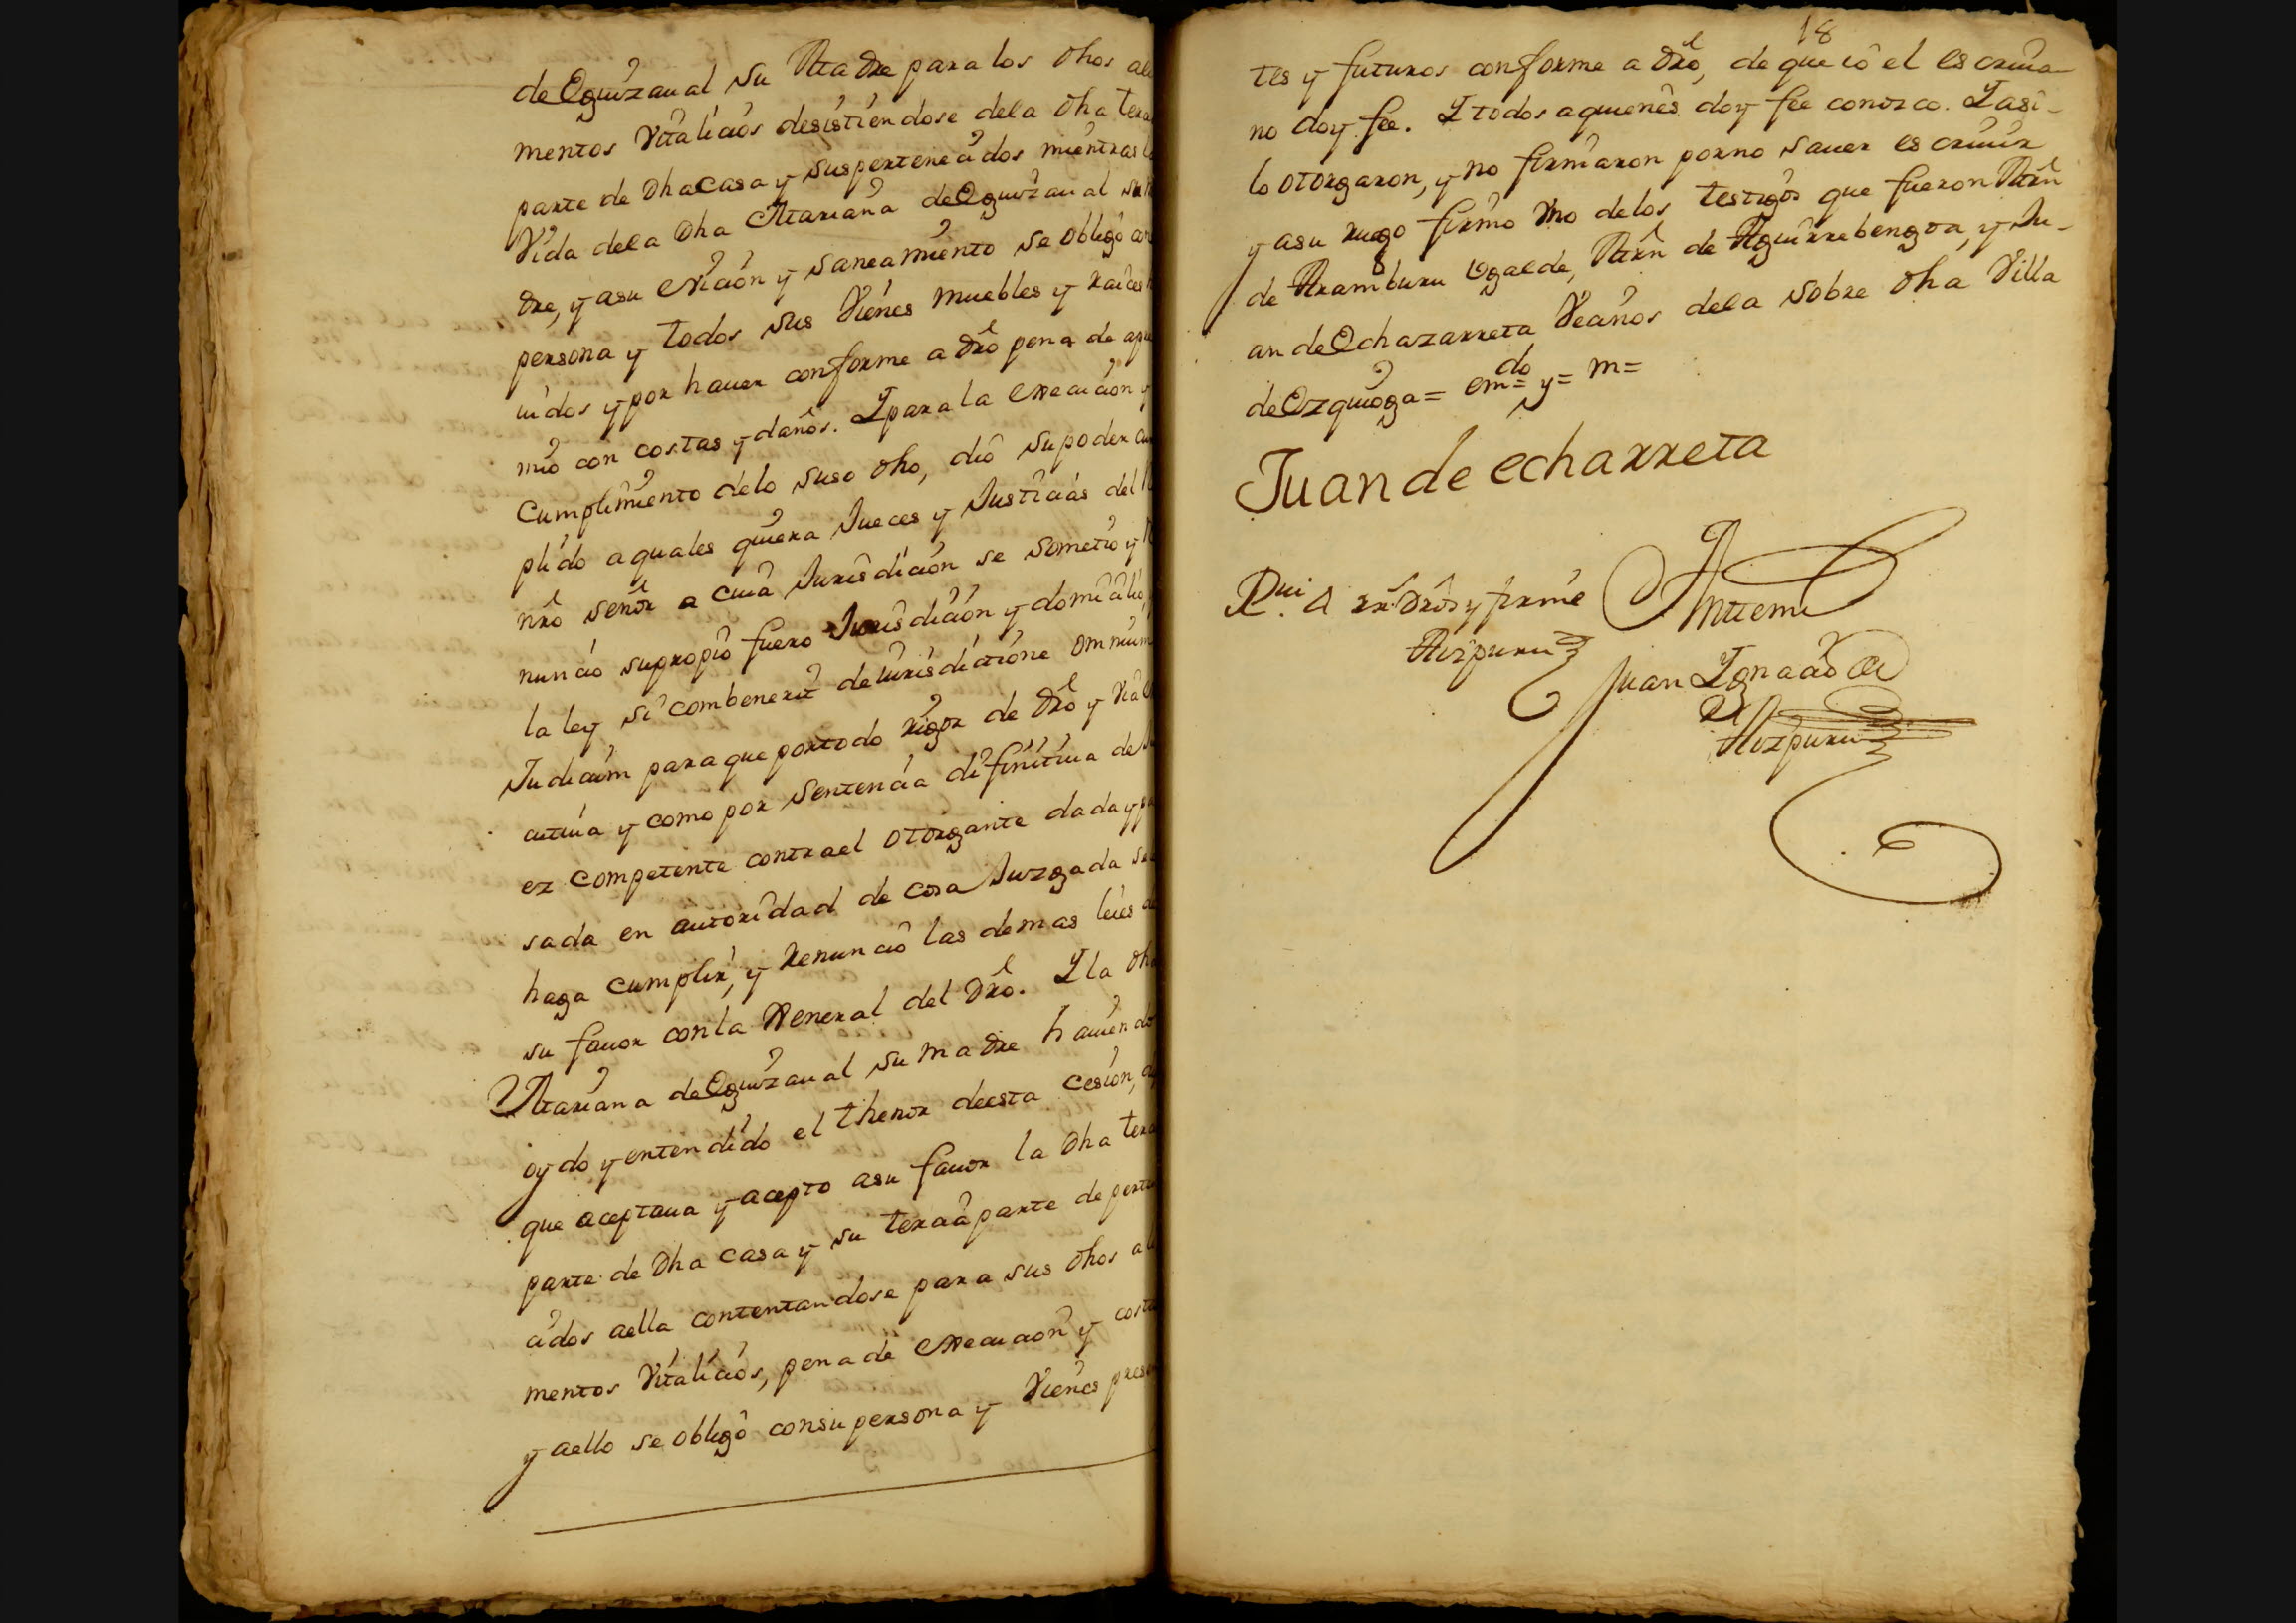 de Oguizaual su Madre para los dhos ali
mentos Vitalicios desistiendose dela dha terz
parte de dha casa y sus pertenecidos mientras la
Vida dela dha Mariana de Oguizaual su
dre, y asu evicion y saneamiento se obligò con
persona y todos sus Vienes muebles y raices
uidos y por hauer conforme a dro pena de apre
mio con costas y daños. Y para la execucion y
cumplimiento delo suso dho, diò su poder cum
plido a quales quiera Jueces y Justicias del
nro señor a cuia Jurisdicion se sometio y
nunciò su propio fuero Jurisdicion y domicilio
la ley si combenerit de iurisdictione omnium
Judicum para que por todo rigor de dro y via
cutiua y como por sentencia difinitiua de Ju
ez competente contra el otorgante dada y pa
sada en autoridad de cosa Juzgada se
haga cumplir, y renunciò las demas leies de
su fauor con la general del dro. Y la dha
Mariana de Oguizaual su madre hauiendo
oydo y entendido el thenor de esta cesion,
que aceptaua y acepto asu fauor la dha terz
parte de dha casa y su tercia parte de perte
cidos aella contentandose para sus dhos ali
mentos Vitalicios, pena de execucion y costas
y aello se obligò con su persona y Vienes presen
18
tes y futuros conforme a dro, de que iò el escriua
no doy fee. Y todos a quienes doy fee conozco. Y asi
lo otorgaron, y no firmaron por no sauer escriuir
y asu ruego firmò Vno delos testigos que fueron Mrn
de Aramburu Ugalde, Mrn de Aguirrebengoa, y Ju
an de Ochazarreta Vecinos dela sobre dha Villa
de Ozquioga = em do = y = m =
Juan de echarreta
y firmè
Antemi
Aizpuru
Juan Ygnacio
de
Aizpuru